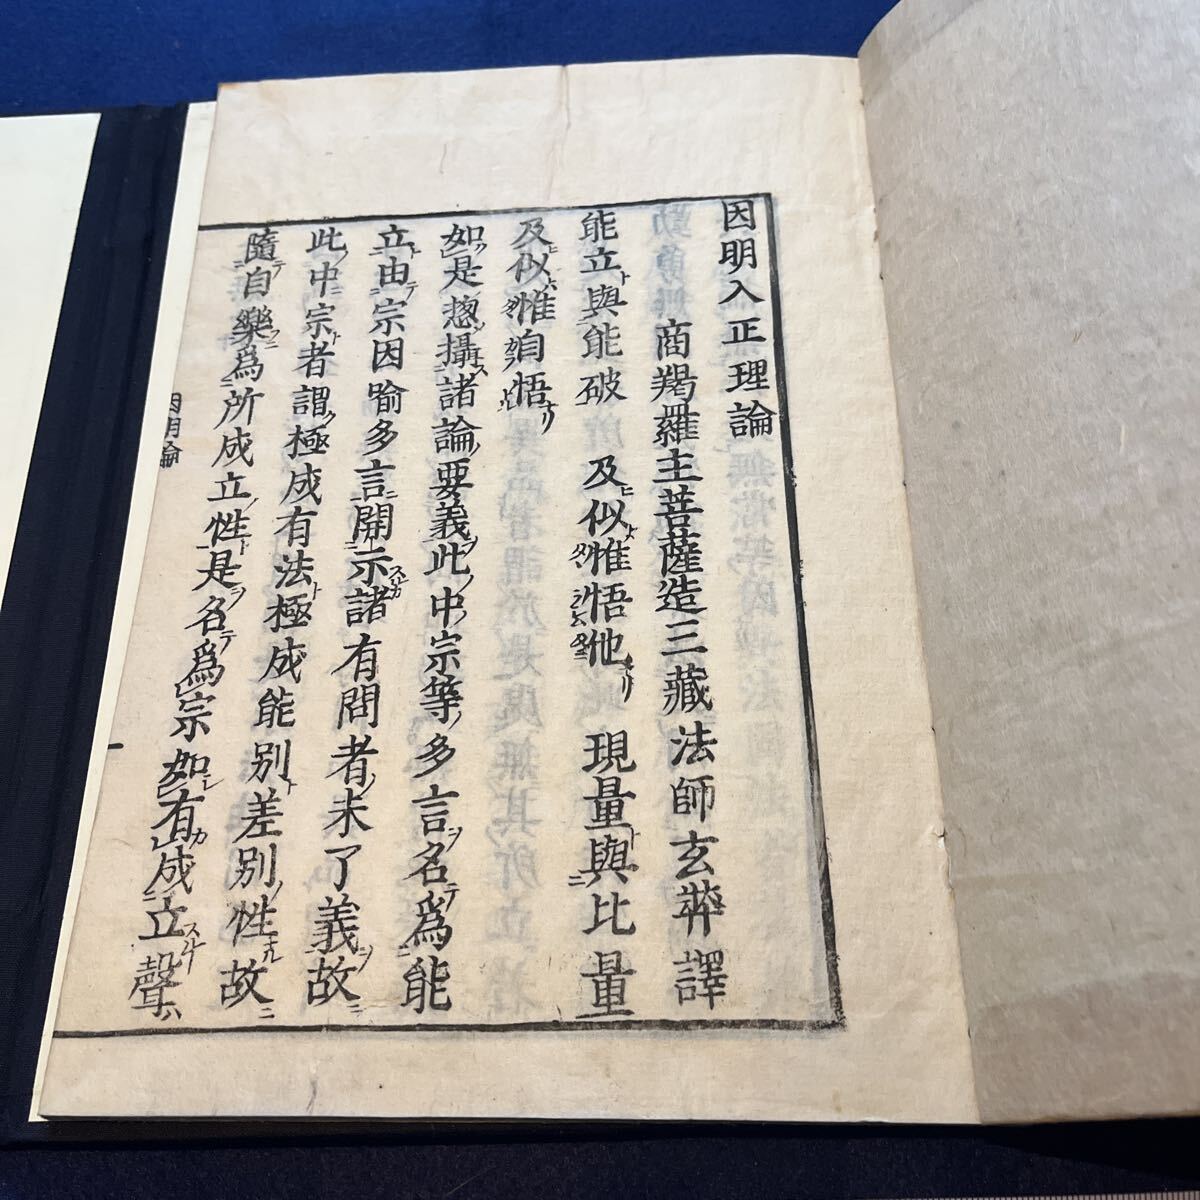 因明入正理論
商羯羅主菩薩造三藏法師玄弉譯
能立與能破 及似惟悟他 現量與比量
及似惟自悟
如是惣攝諸論要義此中宗等多言名爲能
立由宗因喻多言開示諸有問者未了義故
此中宗者謂極成有法極成能別差別性故
隨自樂爲所成立性是名爲宗如有成立聲
因明論
一